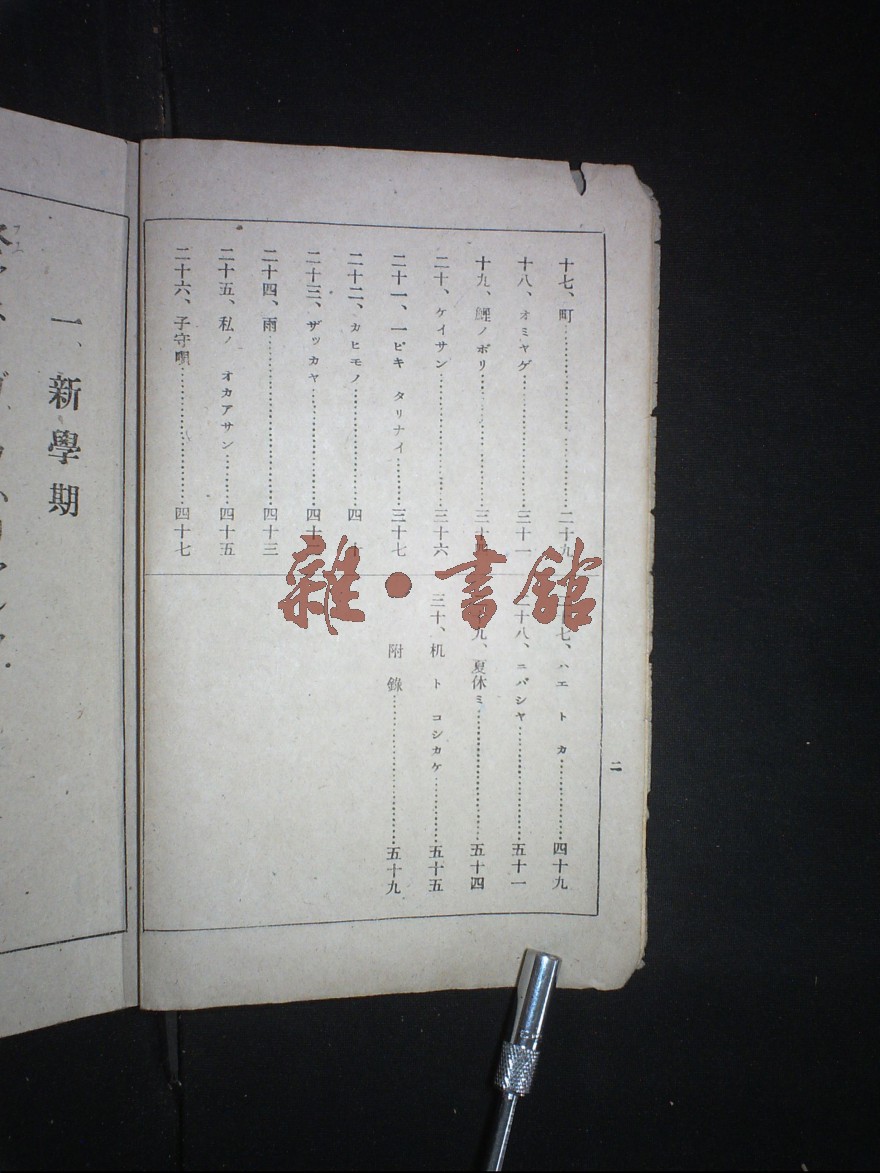 十七、町……二十九
十八、オミヤゲ……三十一
十九、鯉ノボリ……三十
二十、ケイサン……三十六
二十一、一ピキ タリナイ……三十七
二十二、カヒモノ……四十
二十三、ザッカヤ……四十
二十四、雨……四十三
二十五、私ノ オカアサン……四十五
二十六、子守唄……四十七
七、ハエ ト カ……四十九
二十八、ニバシヤ……五十一
九、夏休ミ……五十四
三十、机 ト コシカケ……五十五
附錄……五十九
二
雜·書館
一、新學期